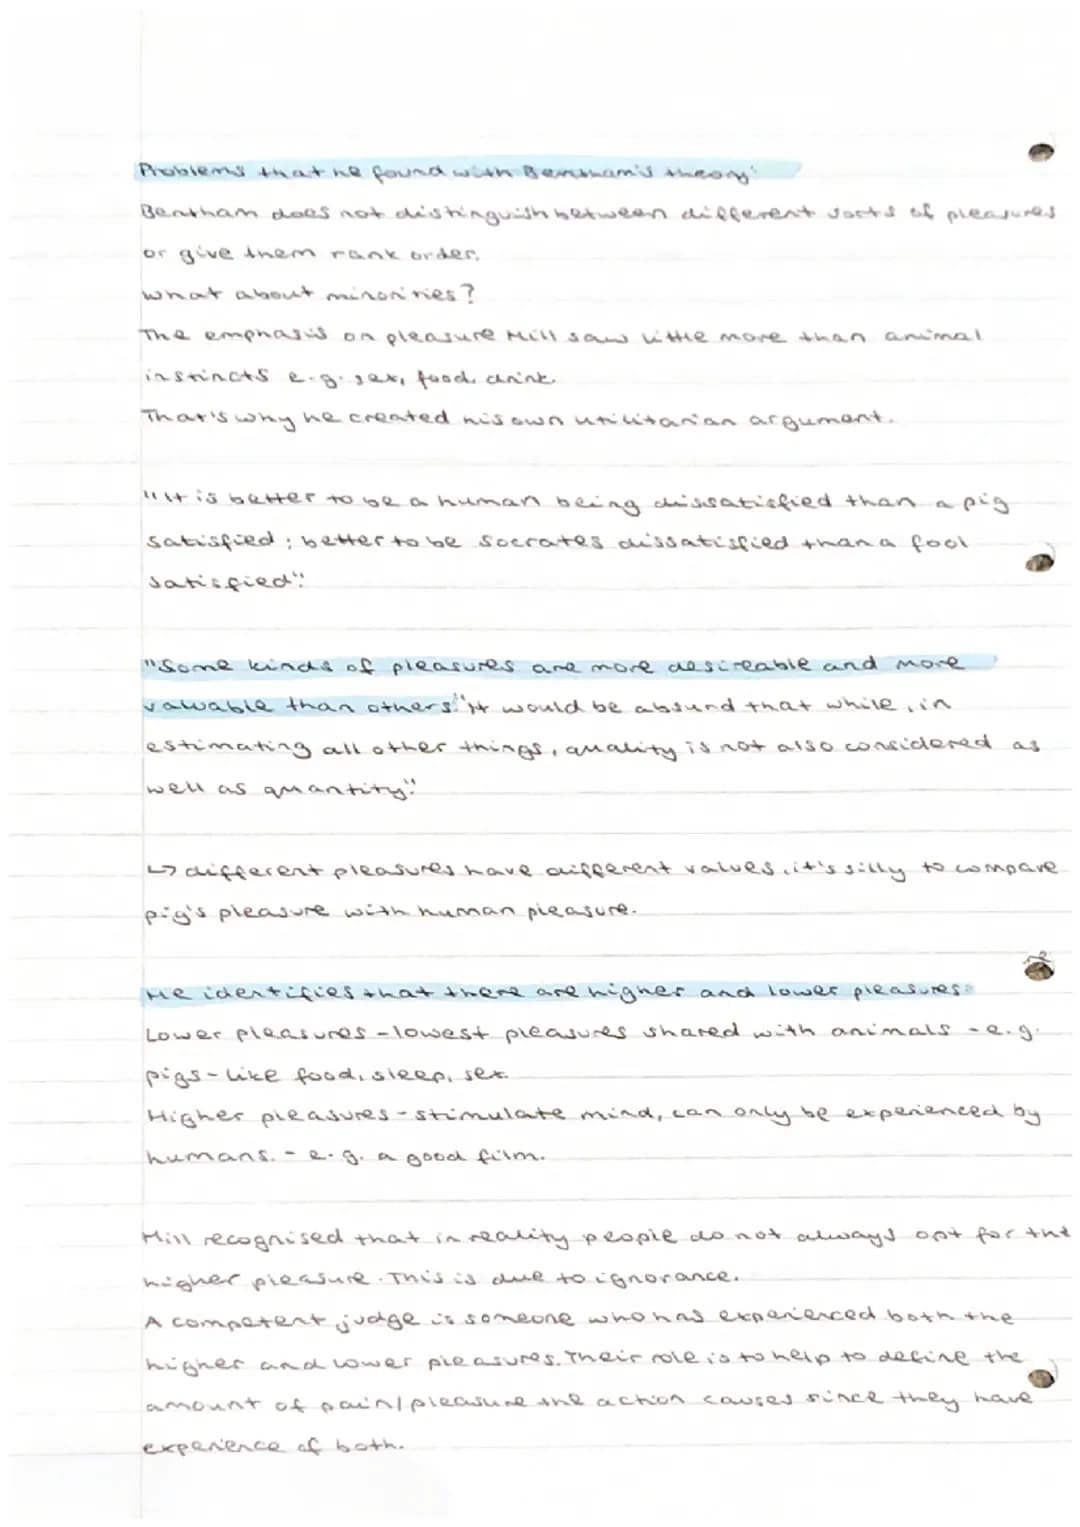 Problems that he found with Bentham's theory:
Bentham does not distinguish between different sorts of pleasures
or give them rank order.
What about minorities?
The emphasis on pleasure Mill saw little more than animal
instincts e.g. sex, food, drink.
That's why he created his own utilitarian argument.
"It is better to be a human being dissatisfied than a pig
satisfied; better to be Socrates dissatisfied than a fool
satisfied".
"Some kinds of pleasures are more desireable and more
valuable than others." "It would be absurd that while, in
estimating all other things, quality is not also considered as
well as quantity".
↳ different pleasures have different values, it's silly to compare
pig's pleasure with human pleasure.
He identifies that there are higher and lower pleasures:
Lower pleasures - lowest pleasures shared with animals - e.g.
pigs - like food, sleep, sex.
Higher pleasures - stimulate mind, can only be experienced by
humans. - e.g. a good film.
Mill recognised that in reality people do not always opt for the
higher pleasure. This is due to ignorance.
A competent judge is someone who has experienced both the
higher and lower pleasures. Their role is to help to define the
amount of pain/pleasure the action causes since they have
experience of both.